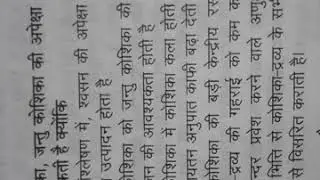 का, जन्तु कोशिका की अपेक्षा
कती है क्योंकि
श्लेषण में, श्वसन की अपेक्षा
उत्पादन होता है
कोशिका को जन्तु कोशिका की
जन की आवश्यकता होती है
शिका में कोशिका कला होती
यतन अनुपात काफी बढ़ा देती
कोशिका की बड़ी केन्द्रीय रस
द्रव्य की गहराई को कम क
न्दर प्रवेश करने वाले अणु
भित्ति से कोशिका-द्रव्य के सभ
से विसरित कराती है।